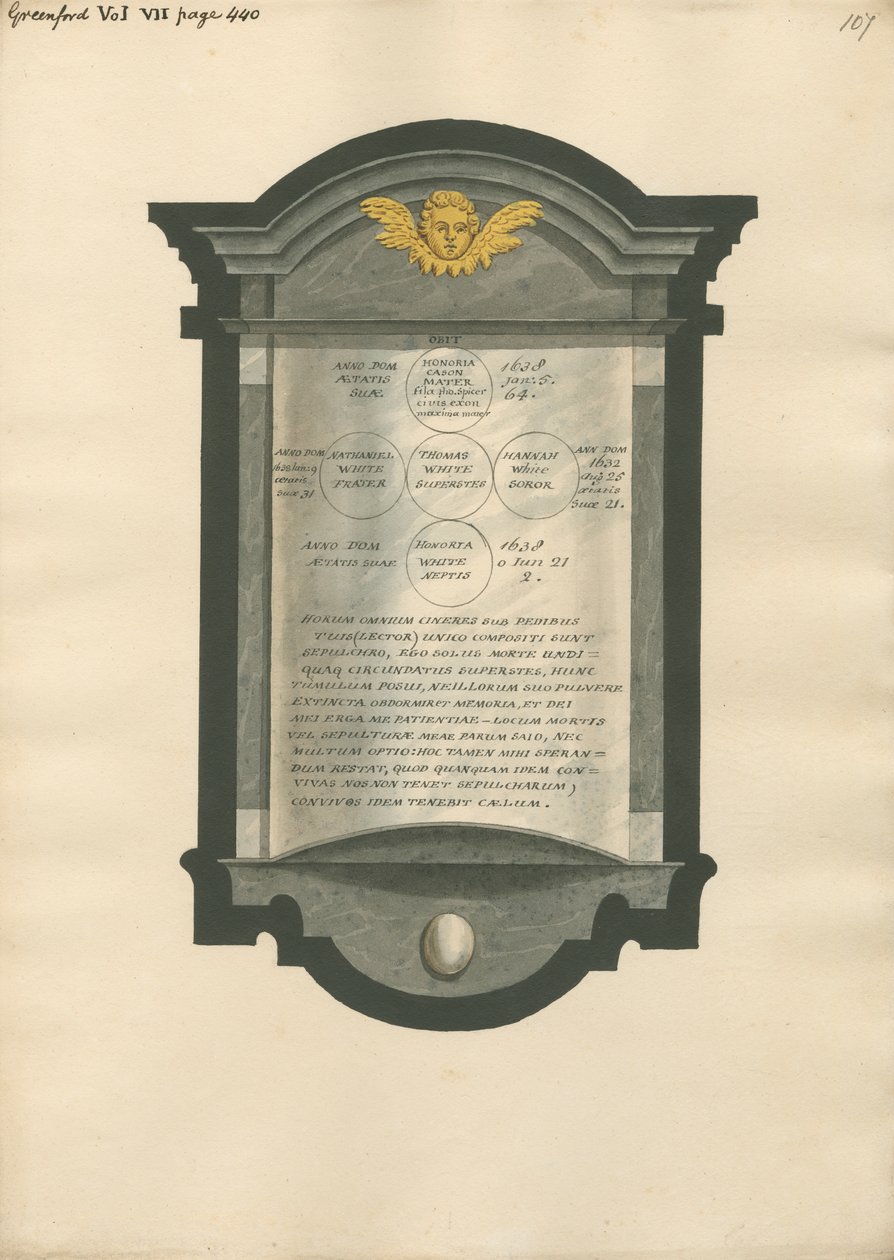 Greenford Vol VII page 440
107
OBIT
ANNO DOM
ÆTATIS
SUÆ
HONORIA
CASON
MATER
fila tho. Spicer
civis exon
maxima maier
1638
Jan. 5.
64.
ANNO DOM
1638 Ian: 9
ætatis
suæ 31
NATHANIEL
WHITE
FRATER
THOMAS
WHITE
SUPERSTES
HANNAH
White
SOROR
ANN DOM
1632
Aug 25
ætatis
Suæ 21.
ANNO DOM
ÆTATIS SUAE
HONORIA
WHITE
NEPTIS
1638
o Iun 21
2.
HORUM OMNIUM CINERES SUB PEDIBUS
TUIS (LECTOR) UNICO COMPOSITI SUNT
SEPULCHRO, EGO SOLUS MORTE UNDI=
QUAQ CIRCUNDATUS SUPERSTES, HUNC
TUMULUM POSUI, NE ILLORUM SUO PULVERE
EXTINCTA OBDORMIRET MEMORIA, ET DEI
MEI ERGA ME PATIENTIAE – LOCUM MORTIS
VEL SEPULTURÆ MEAE PARUM SAIO, NEC
MULTUM OPTIO: HOC TAMEN MIHI SPERAN=
DUM RESTAT, QUOD QUANQUAM IDEM CON=
VIVAS NOS NON TENET SEPULCHARUM)
CONVIVOS IDEM TENEBIT CÆLUM.